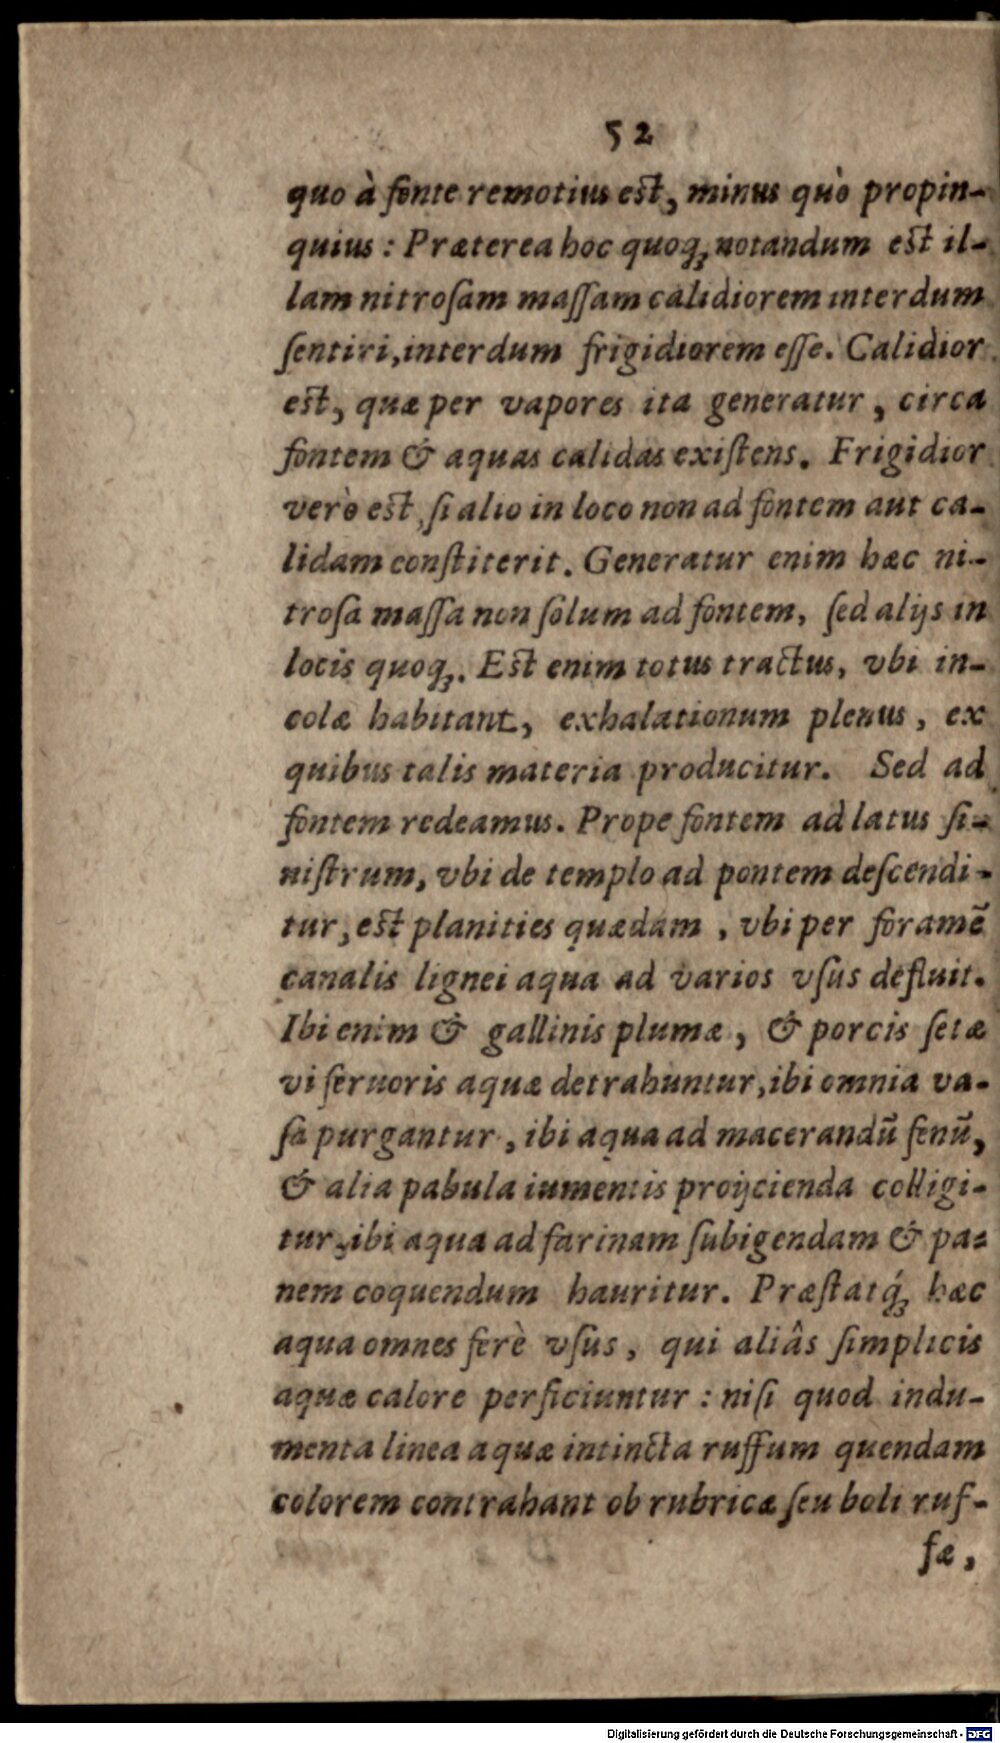 52
quo à fonte remotius est, minus quò propin-
quius : Præterea hoc quoqꝫ notandum est il-
lam nitroſam maſſam calidiorem interdum
ſentiri, interdum frigidiorem eſſe. Calidior
est, quæ per vapores ita generatur, circa
fontem & aquas calidas exiſtens. Frigidior
verò est, ſi alio in loco non ad fontem aut ca-
lidam conſtiterit. Generatur enim hæc ni-
troſa maſſa non ſolum ad fontem, ſed alijs in
locis quoqꝫ. Est enim totus tractus, vbi in-
colæ habitant, exhalationum plenus, ex
quibus talis materia producitur. Sed ad
fontem redeamus. Prope fontem ad latus ſi-
niſtrum, vbi de templo ad pontem deſcendi-
tur, est planities quædam, vbi per foramē
canalis lignei aqua ad varios vſus defluit.
Ibi enim & gallinis plumæ, & porcis ſetæ
vi feruoris aquæ detrahuntur, ibi omnia va-
ſa purgantur, ibi aqua ad macerandū fenū,
& alia pabula iumentis proijcienda colligi-
tur, ibi aqua ad farinam ſubigendam & pa-
nem coquendum hauritur. Præſtatq́ꝫ hæc
aqua omnes ferè vſus, qui aliâs ſimplicis
aquæ calore perficiuntur : niſi quod indu-
menta linea aquæ intincta ruffum quendam
colorem contrahant ob rubricæ ſeu boli ruf-
fæ,
Digitalisierung gefördert durch die Deutsche Forschungsgemeinschaft - DFG